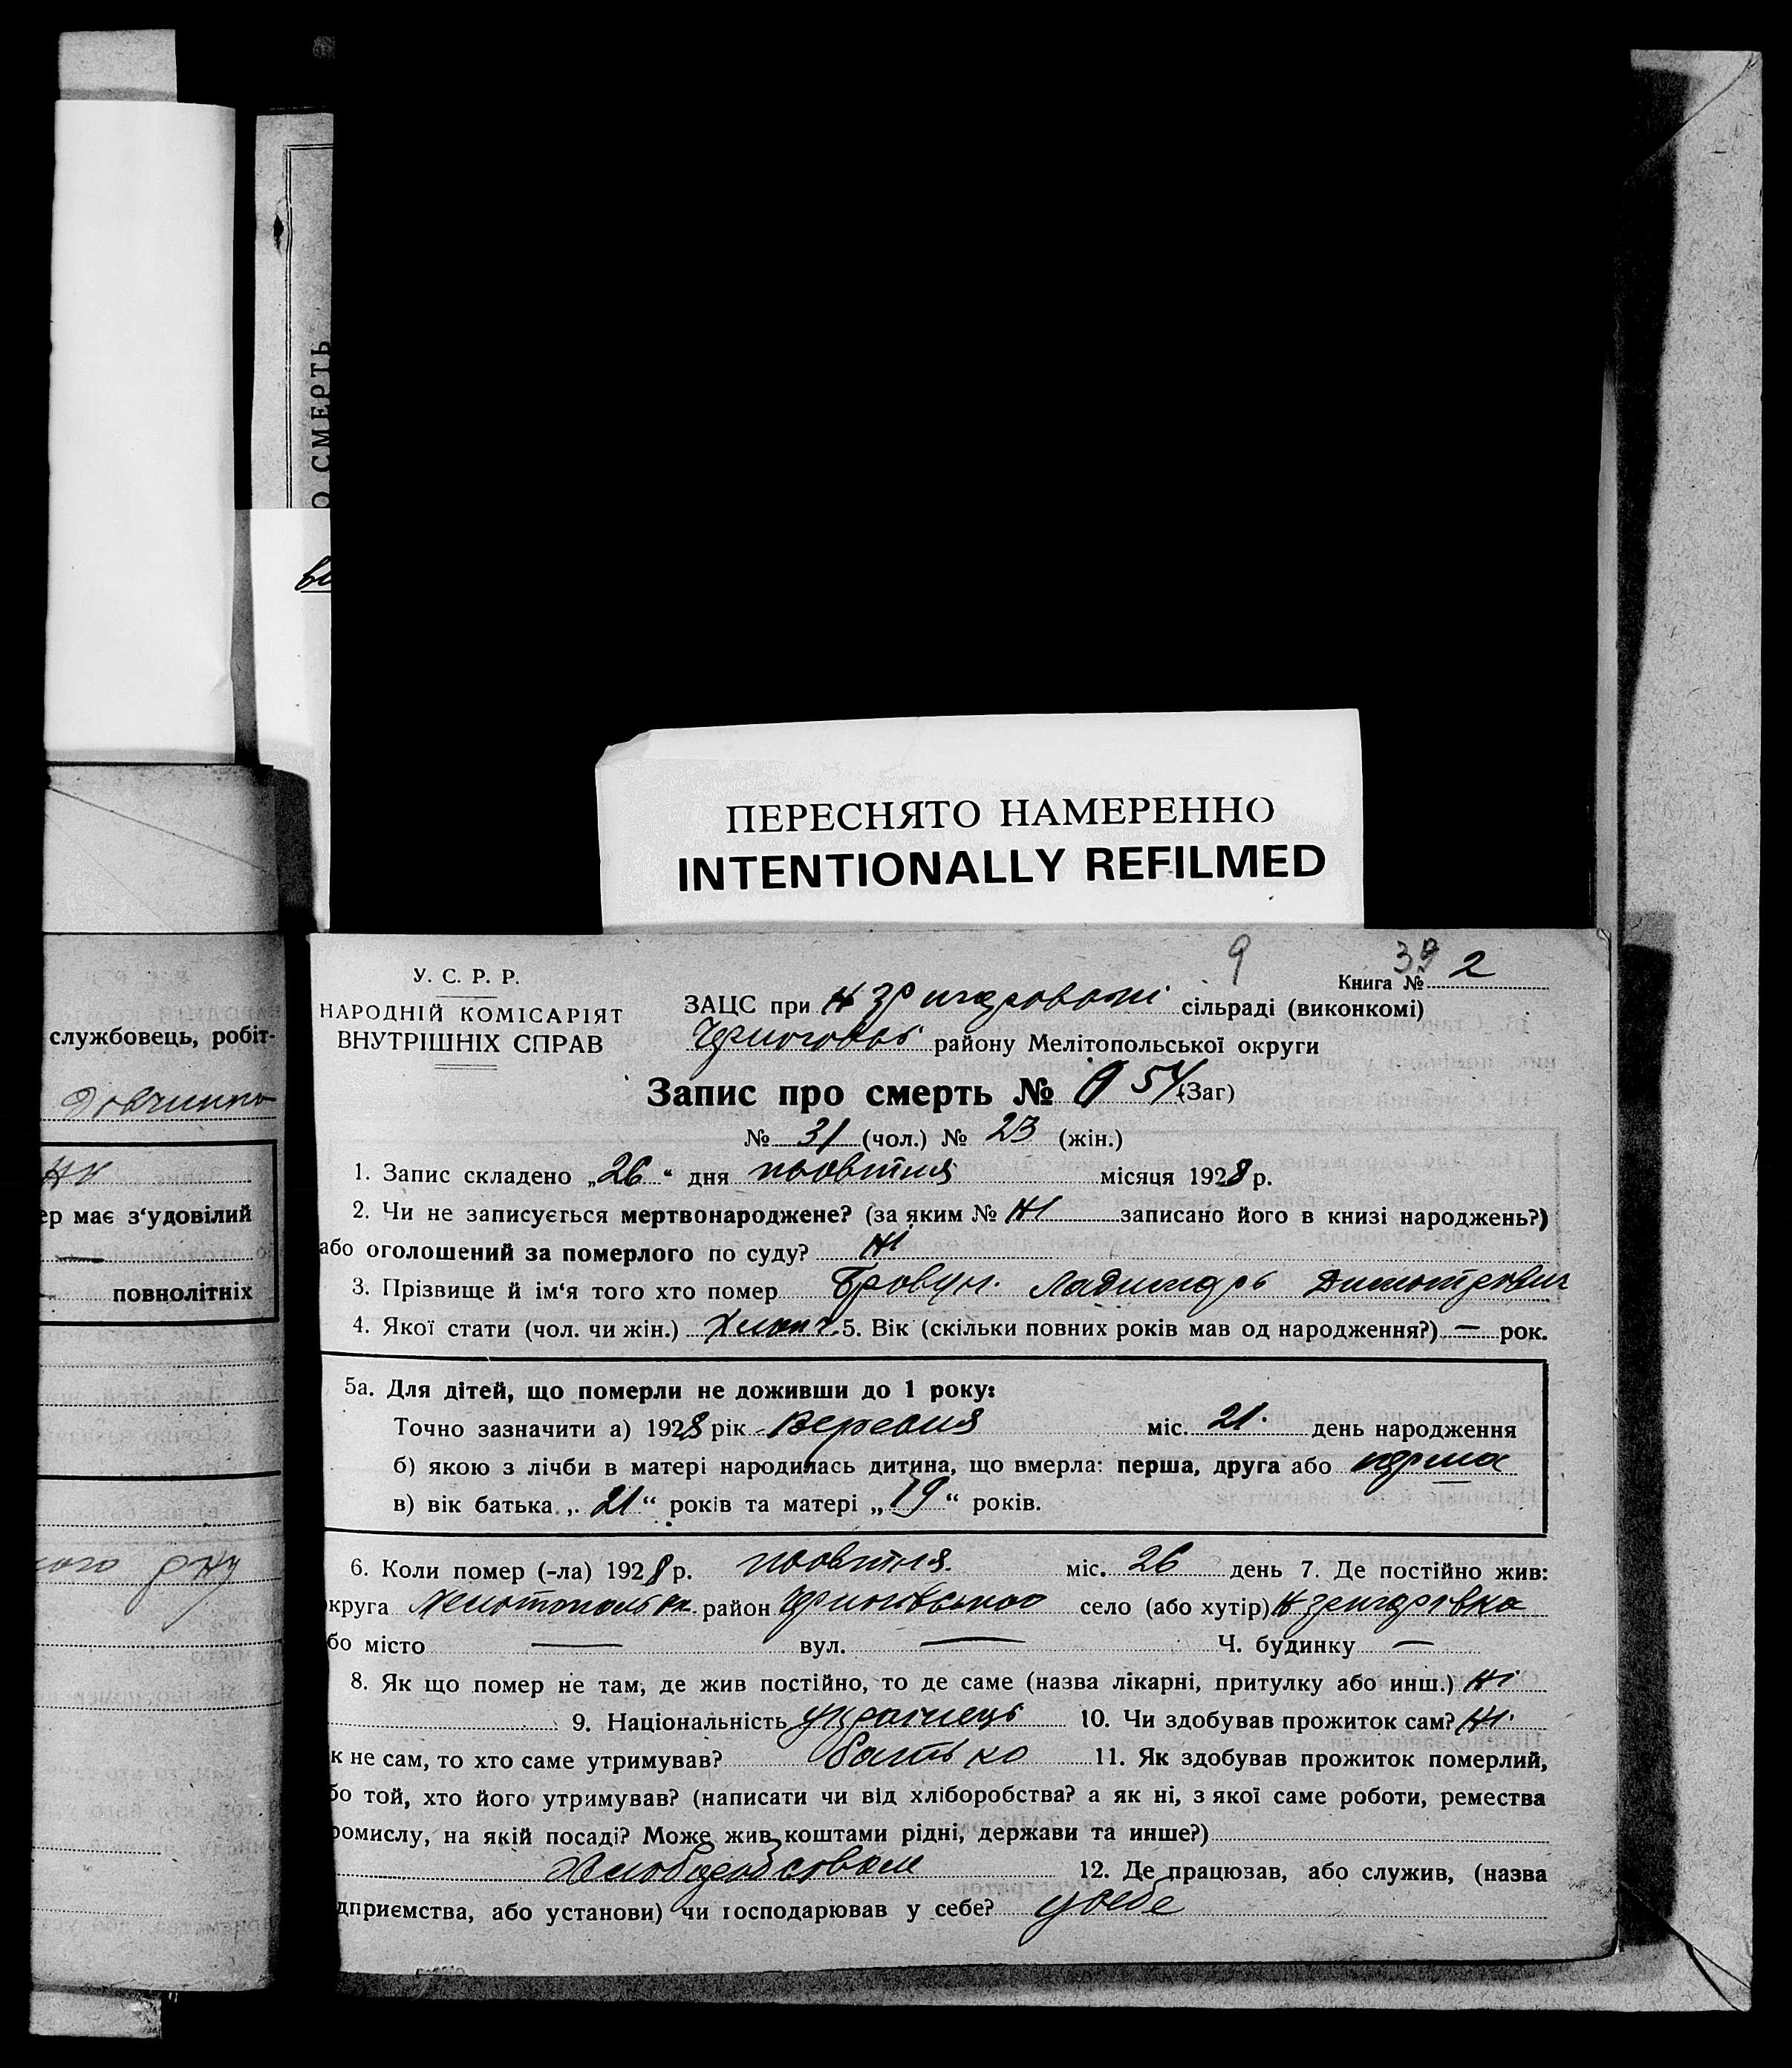 О СМЕРТЬ
ви
службовець, робіт-
Довчинно
Ні
ер має з'удовілий
повнолітніх
ПЕРЕСНЯТО НАМЕРЕННО
INTENTIONALLY REFILMED
9 39
У. С. Р. Р.
Книга № 2
НАРОДНІЙ КОМІСАРІЯТ
ВНУТРІШНІХ СПРАВ
ЗАЦС при сільраді (виконкомі)
району Мелітопольської округи
Запис про смерть № 54 (Заг)
№ 31 (чол.) № 23 (жін.)
1. Запис складено „26“ дня жовтня місяця 1928 р.
2. Чи не записується мертвонароджене? (за яким № Ні записано його в книзі народжень?)
або оголошений за померлого по суду? Ні
3. Прізвище й ім'я того хто помер Бровун. Ладимарь Димитрович
4. Якої стати (чол. чи жін.) Хлопч. 5. Вік (скільки повних років мав од народження?) — рок.
5а. Для дітей, що померли не доживши до 1 року:
Точно зазначити а) 1928 рік Вересня міс. 21. день народження
б) якою з лічби в матері народилась дитина, що вмерла: перша, друга або перша
в) вік батька „21“ років та матері „19“ років.
6. Коли помер (-ла) 1928 р. жовтня. міс. 26 день 7. Де постійно жив:
округа район село (або хутір)
бо місто — вул. — Ч. будинку —
8. Як що помер не там, де жив постійно, то де саме (назва лікарні, притулку або инш.) Ні
9. Національність українець 10. Чи здобував прожиток сам? Ні.
к не сам, то хто саме утримував? батько 11. Як здобував прожиток померлий,
бо той, хто його утримував? (написати чи від хліборобства? а як ні, з якої саме роботи, ремества
ромислу, на якій посаді? Може жив коштами рідні, держави та инше?)
12. Де працював, або служив, (назва
дприємства, або установи) чи господарював у себе? у себе